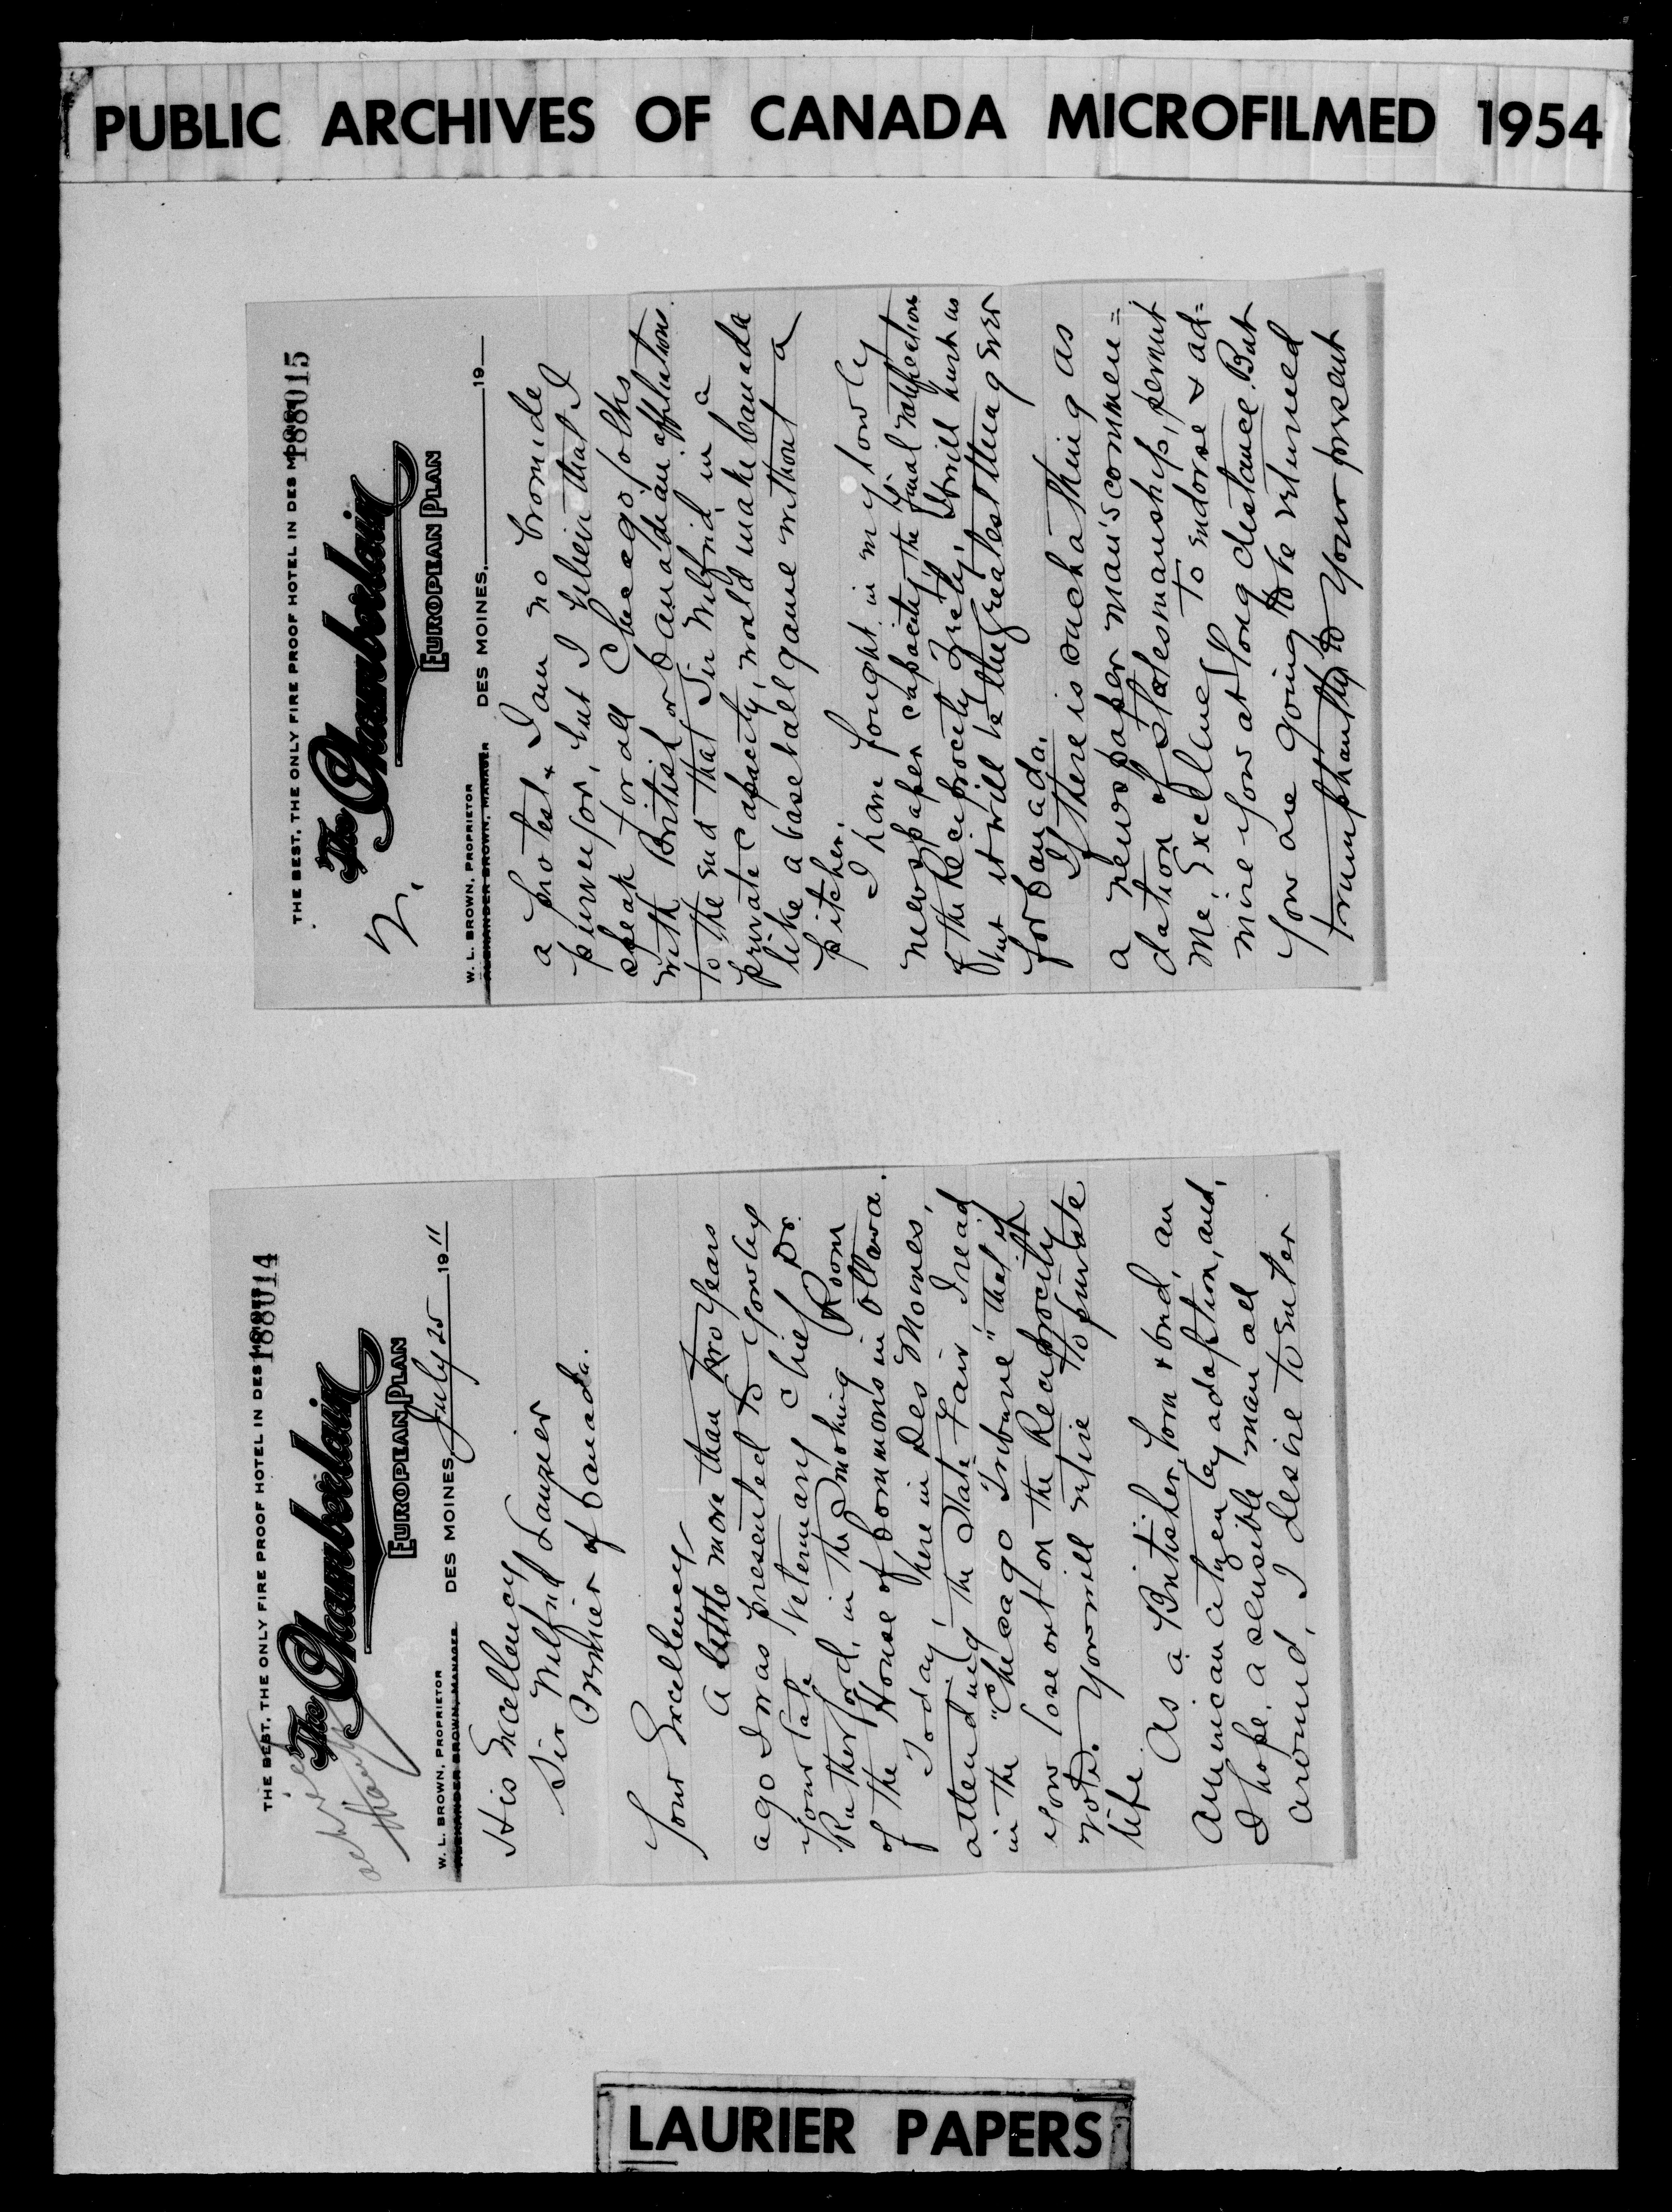 PUBLIC ARCHIVES OF CANADA MICROFILMED 1954
THE BEST, THE ONLY FIRE PROOF HOTEL IN DES MOINES
188014
The Chamberlain
EUROPEAN PLAN
W. L. BROWN, PROPRIETOR
ALEXANDER BROWN, MANAGER
DES MOINES, July 25 1911
His Excellency
Sir Wilfrid Laurier
Premier of Canada.
Your Excellency
A little more than two years
ago I was presented to you by
your late Veterinary Chief Dr.
Rutherford, in the Smoking Room
of the House of Commons in Ottawa.
Today, here in Des Moines,
attending the State Fair I read
in the "Chicago Tribune" that if
you lose out on the Reciprocity
vote. You will retire to private
life.
As a Britisher, born & bred, an
American citizen by adoption, and,
I hope, a sensible man all
around, I desire to enter
THE BEST, THE ONLY FIRE PROOF HOTEL IN DES MOINES
188015
The Chamberlain
EUROPEAN PLAN
2.
W. L. BROWN, PROPRIETOR
ALEXANDER BROWN, MANAGER
DES MOINES, 19
a protest. I am no bromide
purveyor, but I believe that I
speak for all Chicago folks
with British or Canadian affiliations.
to the end that Sir Wilfrid in a
private capacity, would make Canada
like a base ball game without a
pitcher.
I have fought in my lowly
newspaper capacity the final ratification
of the Reciprocity Treaty. It will hurt us
but it will be the greatest thing ever
for Canada.
If there is such a thing as
a newspaper man's commen=
dation of statesmanship, permit
me, Excellency to endorse & ad=
mire you at long distance. But
you are going to be returned
triumphantly to your present
LAURIER PAPERS